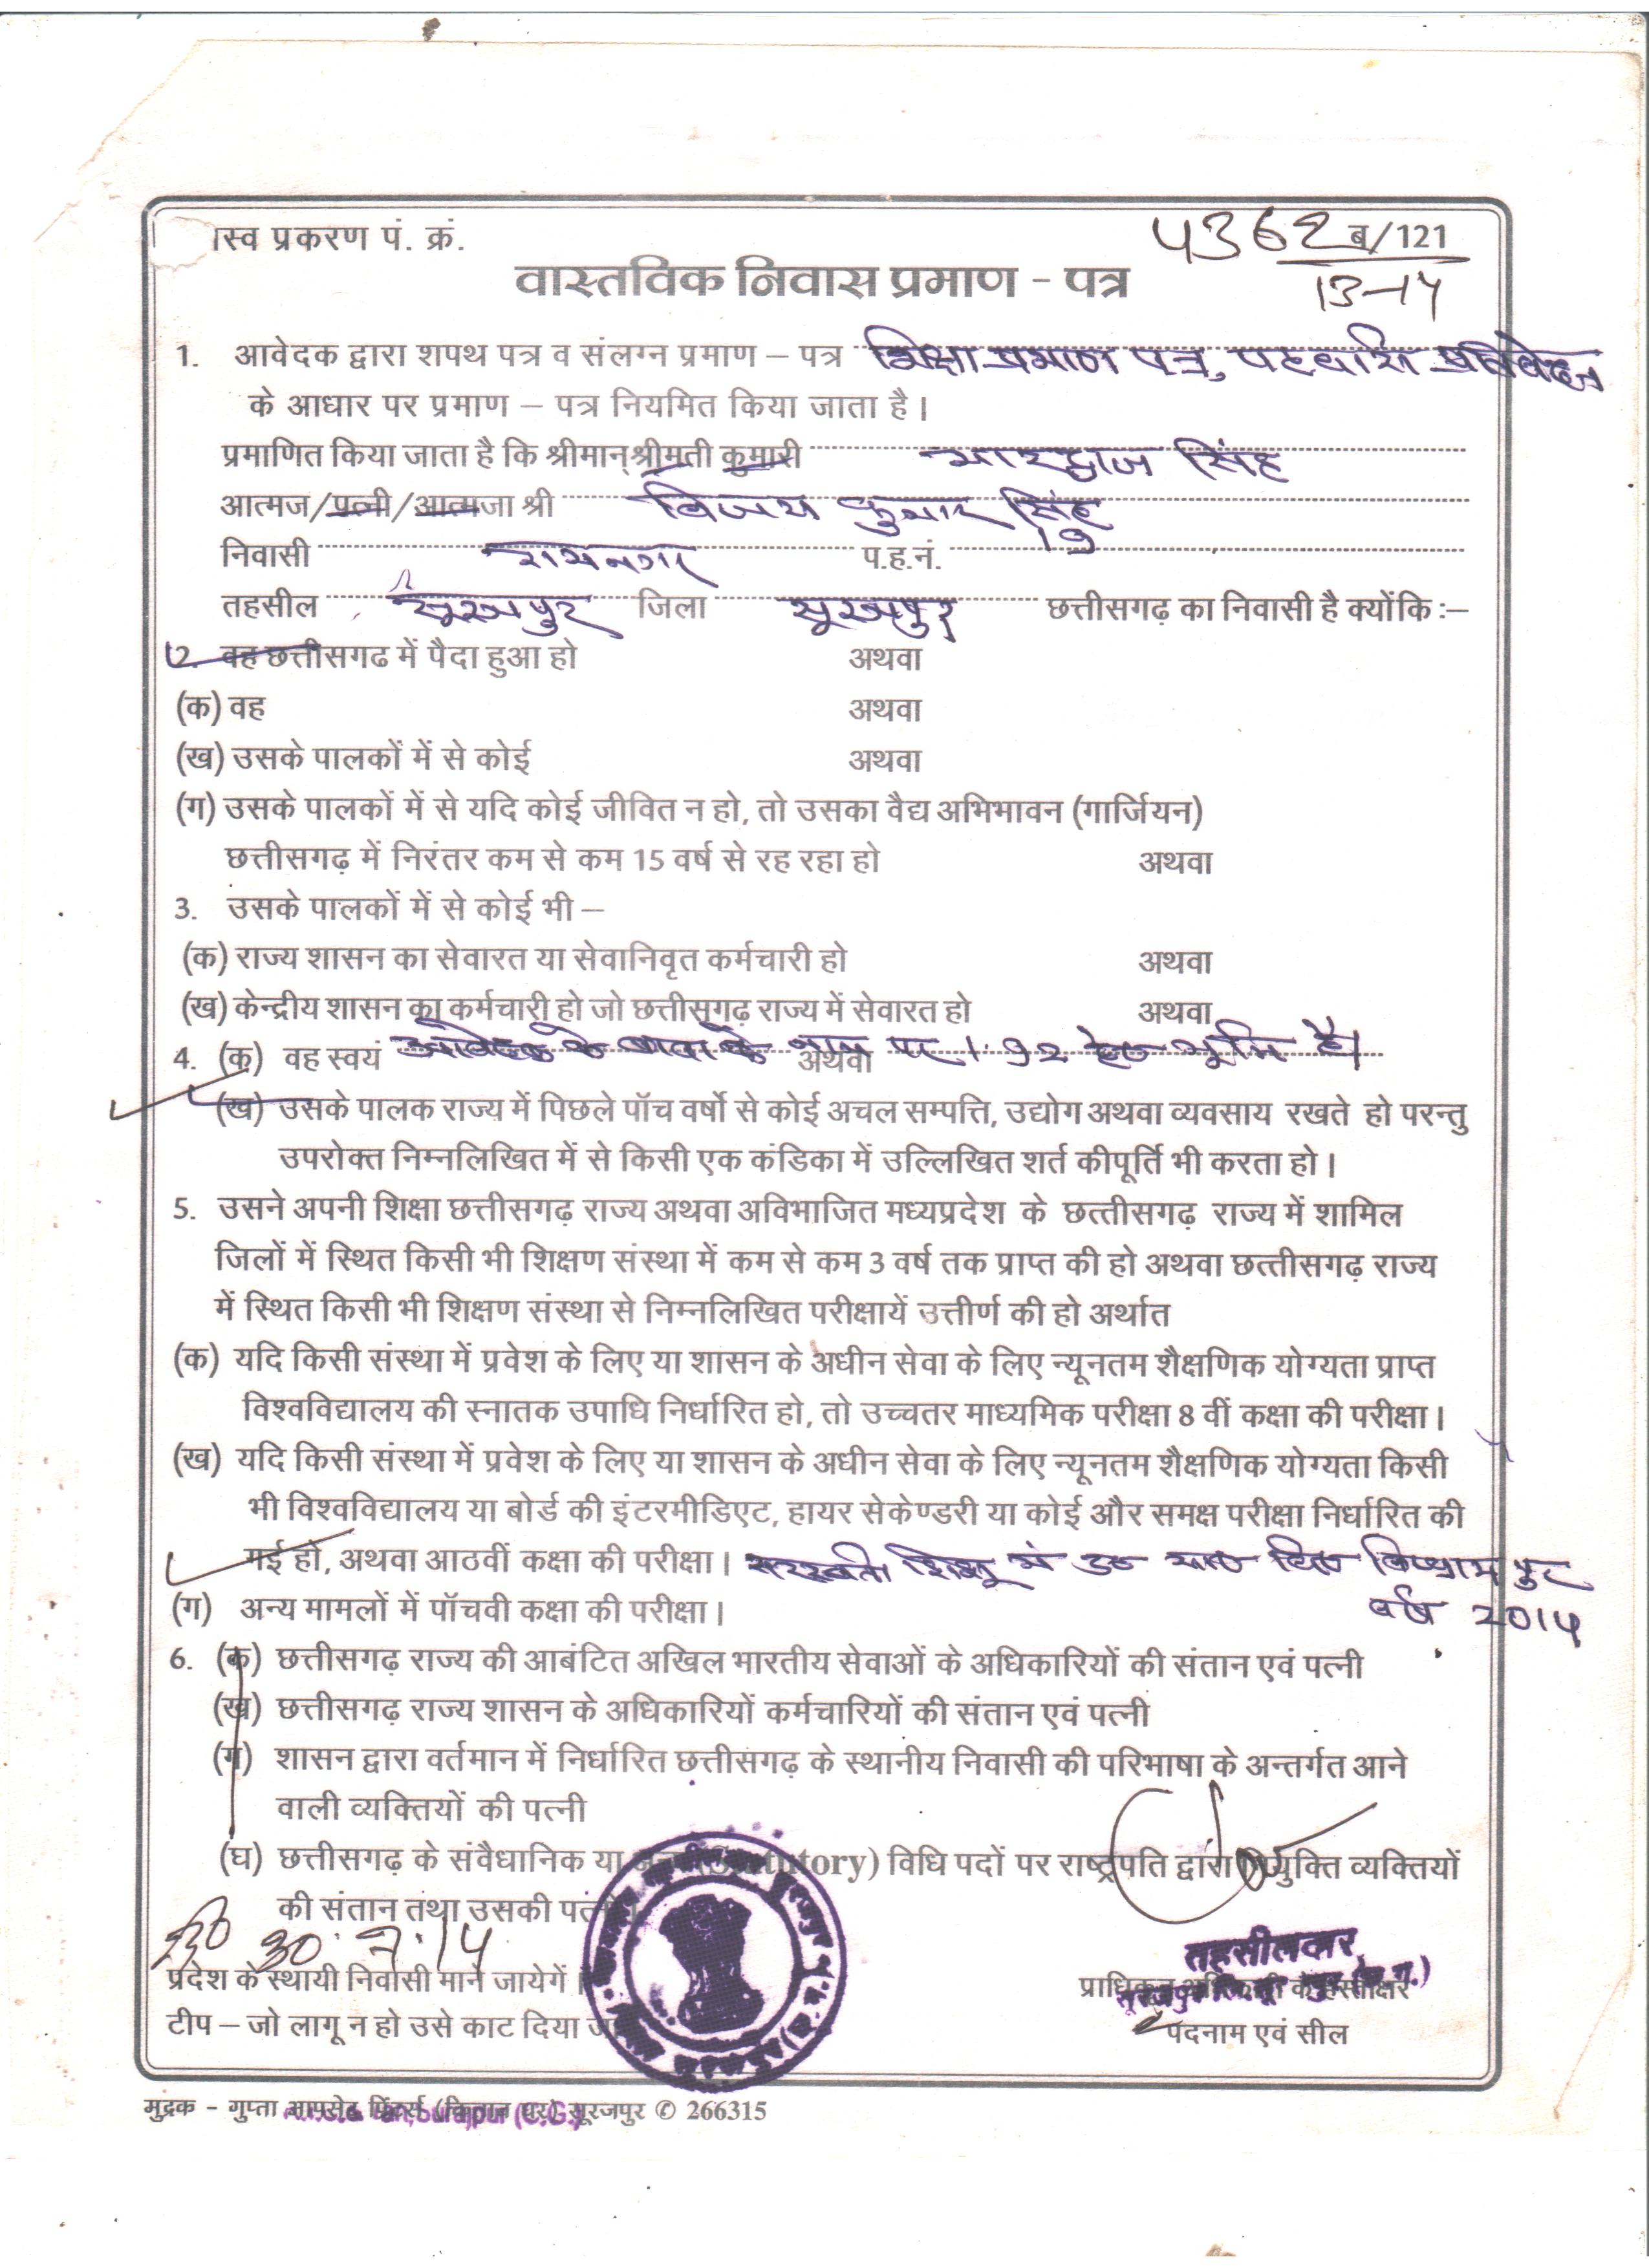 स्व प्रकरण पं. क्रं. 4362 ब/121
13-14
वास्तविक निवास प्रमाण - पत्र
1. आवेदक द्वारा शपथ पत्र व संलग्न प्रमाण – पत्र शिक्षा प्रमाण पत्र, पटवारी प्रतिवेदन
के आधार पर प्रमाण – पत्र नियमित किया जाता है।
प्रमाणित किया जाता है कि श्रीमान् श्रीमती कुमारी भारद्वाज सिंह
आत्मज/पत्नी/आत्मजा श्री विजय कुमार सिंह
निवासी रामनगर प.ह.नं. 19
तहसील सूरजपुर जिला सूरजपुर छत्तीसगढ़ का निवासी है क्योंकि :–
2. वह छत्तीसगढ में पैदा हुआ हो अथवा
(क) वह अथवा
(ख) उसके पालकों में से कोई अथवा
(ग) उसके पालकों में से यदि कोई जीवित न हो, तो उसका वैद्य अभिभावन (गार्जियन)
छत्तीसगढ़ में निरंतर कम से कम 15 वर्ष से रह रहा हो अथवा
3. उसके पालकों में से कोई भी –
(क) राज्य शासन का सेवारत या सेवानिवृत कर्मचारी हो अथवा
(ख) केन्द्रीय शासन का कर्मचारी हो जो छत्तीसगढ़ राज्य में सेवारत हो अथवा
4. (क) वह स्वयं आवेदक के के नाम पर 1.92 हे0 भूमि है। अथवा
(ख) उसके पालक राज्य में पिछले पॉच वर्षो से कोई अचल सम्पत्ति, उद्योग अथवा व्यवसाय रखते हो परन्तु
उपरोक्त निम्नलिखित में से किसी एक कंडिका में उल्लिखित शर्त कीपूर्ति भी करता हो।
5. उसने अपनी शिक्षा छत्तीसगढ़ राज्य अथवा अविभाजित मध्यप्रदेश के छत्तीसगढ़ राज्य में शामिल
जिलों में स्थित किसी भी शिक्षण संस्था में कम से कम 3 वर्ष तक प्राप्त की हो अथवा छत्तीसगढ़ राज्य
में स्थित किसी भी शिक्षण संस्था से निम्नलिखित परीक्षायें उत्तीर्ण की हो अर्थात
(क) यदि किसी संस्था में प्रवेश के लिए या शासन के अधीन सेवा के लिए न्यूनतम शैक्षणिक योग्यता प्राप्त
विश्वविद्यालय की स्नातक उपाधि निर्धारित हो, तो उच्चतर माध्यमिक परीक्षा 8 वीं कक्षा की परीक्षा।
(ख) यदि किसी संस्था में प्रवेश के लिए या शासन के अधीन सेवा के लिए न्यूनतम शैक्षणिक योग्यता किसी
भी विश्वविद्यालय या बोर्ड की इंटरमीडिएट, हायर सेकेण्डरी या कोई और समक्ष परीक्षा निर्धारित की
गई हो, अथवा आठवीं कक्षा की परीक्षा। सरस्वती शिशु मं उ0 मा0 वि0 विश्रामपुर
वर्ष 2014
(ग) अन्य मामलों में पॉचवी कक्षा की परीक्षा।
6. (क) छत्तीसगढ़ राज्य की आबंटित अखिल भारतीय सेवाओं के अधिकारियों की संतान एवं पत्नी
(ख) छत्तीसगढ़ राज्य शासन के अधिकारियों कर्मचारियों की संतान एवं पत्नी
(ग) शासन द्वारा वर्तमान में निर्धारित छत्तीसगढ़ के स्थानीय निवासी की परिभाषा के अन्तर्गत आने
वाली व्यक्तियों की पत्नी
(घ) छत्तीसगढ़ के संवैधानिक या (Statutory) विधि पदों पर राष्ट्रपति द्वारा नियुक्ति व्यक्तियों
की संतान तथा उसकी पत्नी
30.7.14
तहसीलदार
प्रदेश के स्थायी निवासी माने जायेगें। प्राधिकृत अधिकारी के हस्ताक्षर
टीप – जो लागू न हो उसे काट दिया पदनाम एवं सील
मुद्रक - गुप्ता आफसेट प्रिंटर्स (किताब घर) सूरजपुर ✆ 266315